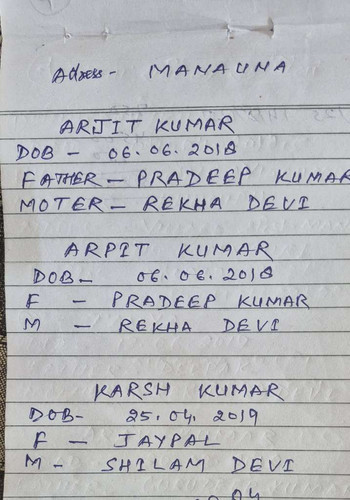 Adress - MANAUNA
ARJIT KUMAR
DOB - 06.06.2018
FATHER - PRADEEP KUMAR
MOTER - REKHA DEVI
ARPIT KUMAR
DOB - 06.06.2018
F - PRADEEP KUMAR
M - REKHA DEVI
KARSH KUMAR
DOB - 25.04.2019
F - JAYPAL
M - SHILAM DEVI
04